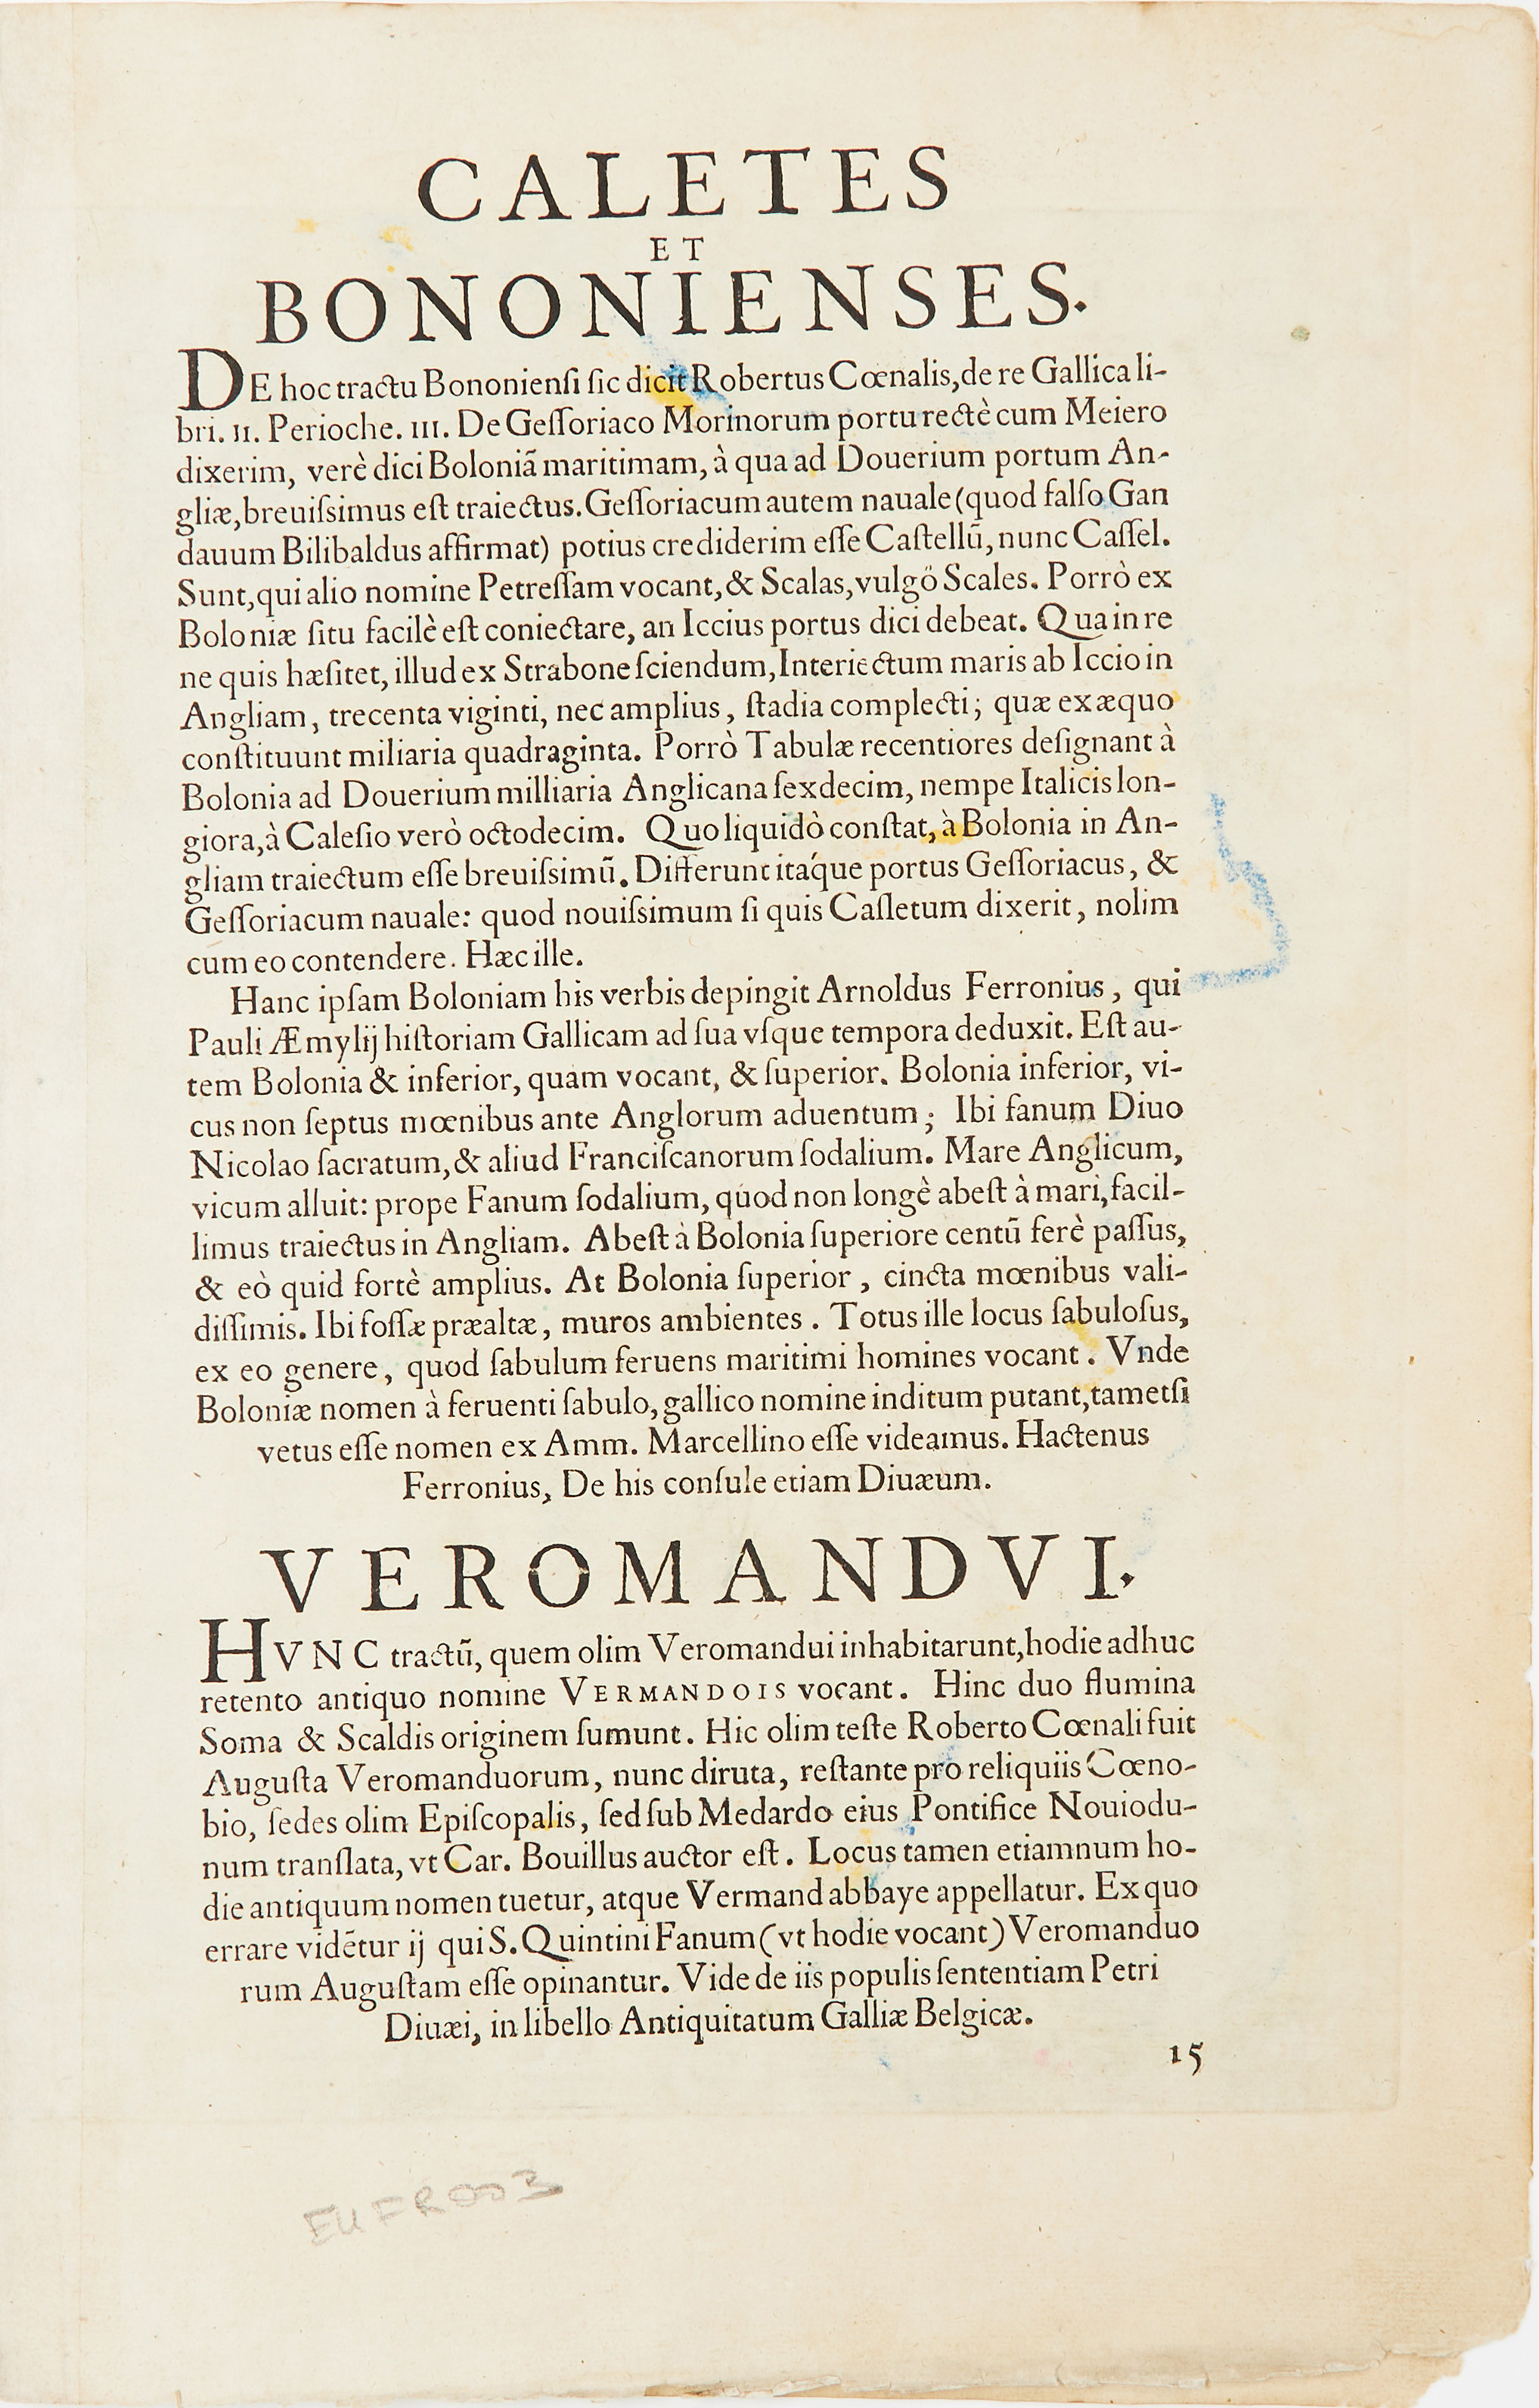 CALETES
ET
BONONIENSES.
DE hoc tractu Bononienſi ſic dicit Robertus Cœnalis, de re Gallica li-
bri. II. Perioche. III. De Geſſoriaco Morinorum portu rectè cum Meiero
dixerim, verè dici Boloniã maritimam, à qua ad Douerium portum An-
gliæ, breuiſsimus eſt traiectus. Geſſoriacum autem nauale (quod falſo Gan
dauum Bilibaldus affirmat) potius crediderim eſſe Caſtellũ, nunc Caſſel.
Sunt, qui alio nomine Petreſſam vocant, & Scalas, vulgò Scales. Porrò ex
Boloniæ ſitu facilè eſt coniectare, an Iccius portus dici debeat. Qua in re
ne quis hæſitet, illud ex Strabone ſciendum, Interiectum maris ab Iccio in
Angliam, trecenta viginti, nec amplius, ſtadia complecti; quæ ex æquo
conſtituunt miliaria quadraginta. Porrò Tabulæ recentiores deſignant à
Bolonia ad Douerium milliaria Anglicana ſexdecim, nempe Italicis lon-
giora, à Caleſio verò octodecim. Quo liquidò conſtat, à Bolonia in An-
gliam traiectum eſſe breuiſsimũ. Differunt itáque portus Geſſoriacus, &
Geſſoriacum nauale: quod nouiſsimum ſi quis Caſletum dixerit, nolim
cum eo contendere. Hæc ille.
Hanc ipſam Boloniam his verbis depingit Arnoldus Ferronius, qui
Pauli Æmylij hiſtoriam Gallicam ad ſua vſque tempora deduxit. Eſt au-
tem Bolonia & inferior, quam vocant, & ſuperior. Bolonia inferior, vi-
cus non ſeptus mœnibus ante Anglorum aduentum; Ibi fanum Diuo
Nicolao ſacratum, & aliud Franciſcanorum ſodalium. Mare Anglicum,
vicum alluit: prope Fanum ſodalium, quod non longè abeſt à mari, facil-
limus traiectus in Angliam. Abeſt à Bolonia ſuperiore centũ ferè paſſus,
& eò quid fortè amplius. At Bolonia ſuperior, cincta mœnibus vali-
diſſimis. Ibi foſſæ præaltæ, muros ambientes. Totus ille locus ſabuloſus,
ex eo genere, quod ſabulum feruens maritimi homines vocant. Vnde
Boloniæ nomen à feruenti ſabulo, gallico nomine inditum putant, tametſi
vetus eſſe nomen ex Amm. Marcellino eſſe videamus. Hactenus
Ferronius, De his conſule etiam Diuæum.
VEROMANDVI.
HVNC tractũ, quem olim Veromandui inhabitarunt, hodie adhuc
retento antiquo nomine VERMANDOIS vocant. Hinc duo flumina
Soma & Scaldis originem ſumunt. Hic olim teſte Roberto Cœnali fuit
Auguſta Veromanduorum, nunc diruta, reſtante pro reliquiis Cœno-
bio, ſedes olim Epiſcopalis, ſed ſub Medardo eius Pontifice Nouiodu-
num tranſlata, vt Car. Bouillus auctor eſt. Locus tamen etiamnum ho-
die antiquum nomen tuetur, atque Vermand abbaye appellatur. Ex quo
errare vidẽtur ij qui S. Quintini Fanum (vt hodie vocant) Veromanduo
rum Auguſtam eſſe opinantur. Vide de iis populis ſententiam Petri
Diuæi, in libello Antiquitatum Galliæ Belgicæ.
15
EUFR003